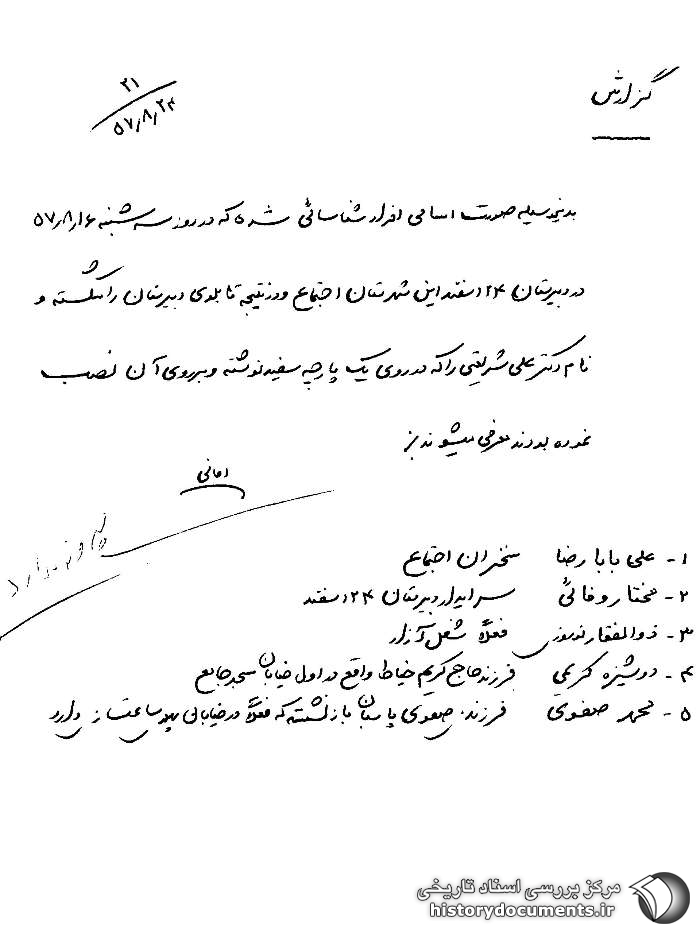 گزارش
۲۱
۵۷/۸/۲۴
بدینوسیله صورت اسامی افراد شناسائی شده که در روز سه شنبه ۵۷/۸/۱۶
در دبیرستان ۲۴ اسفند این شهرستان اجتماع و در نتیجه تابلوی دبیرستان را شکسته و
نام دکتر علی شریعتی را که در روی یک پارچه سفید نوشته و بر روی آن نصب
نموده بودند معرفی میشوند
امانی
۱- علی بابا رضا سخنران اجتماع
۲- مختار وفائی سرایدار دبیرستان ۲۴ اسفند
۳- ذوالفقار فعلاً شغل آزاد
۴- دوشیزه کریمی فرزند حاج کریم خیاط واقع در اول خیابان مسجد جامع
۵- محمد صفوی فرزند صفوی پاسبان بازنشسته که فعلاً در خیابان پهلوی ساعت سازی دارد
مرکز بررسی اسناد تاریخی
historydocuments.ir